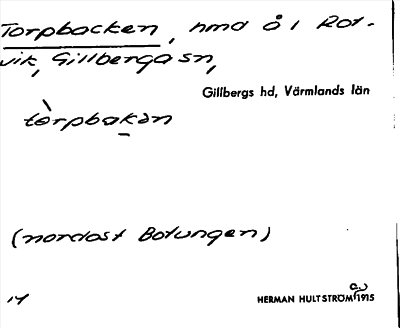 Torpbacken, hmd å 1 Rot-
vik, Gillberga sn,
Gillbergs hd, Värmlands län
tòrpbakən
(nordost Botungen)
14
HERMAN HULTSTRÖM 1915